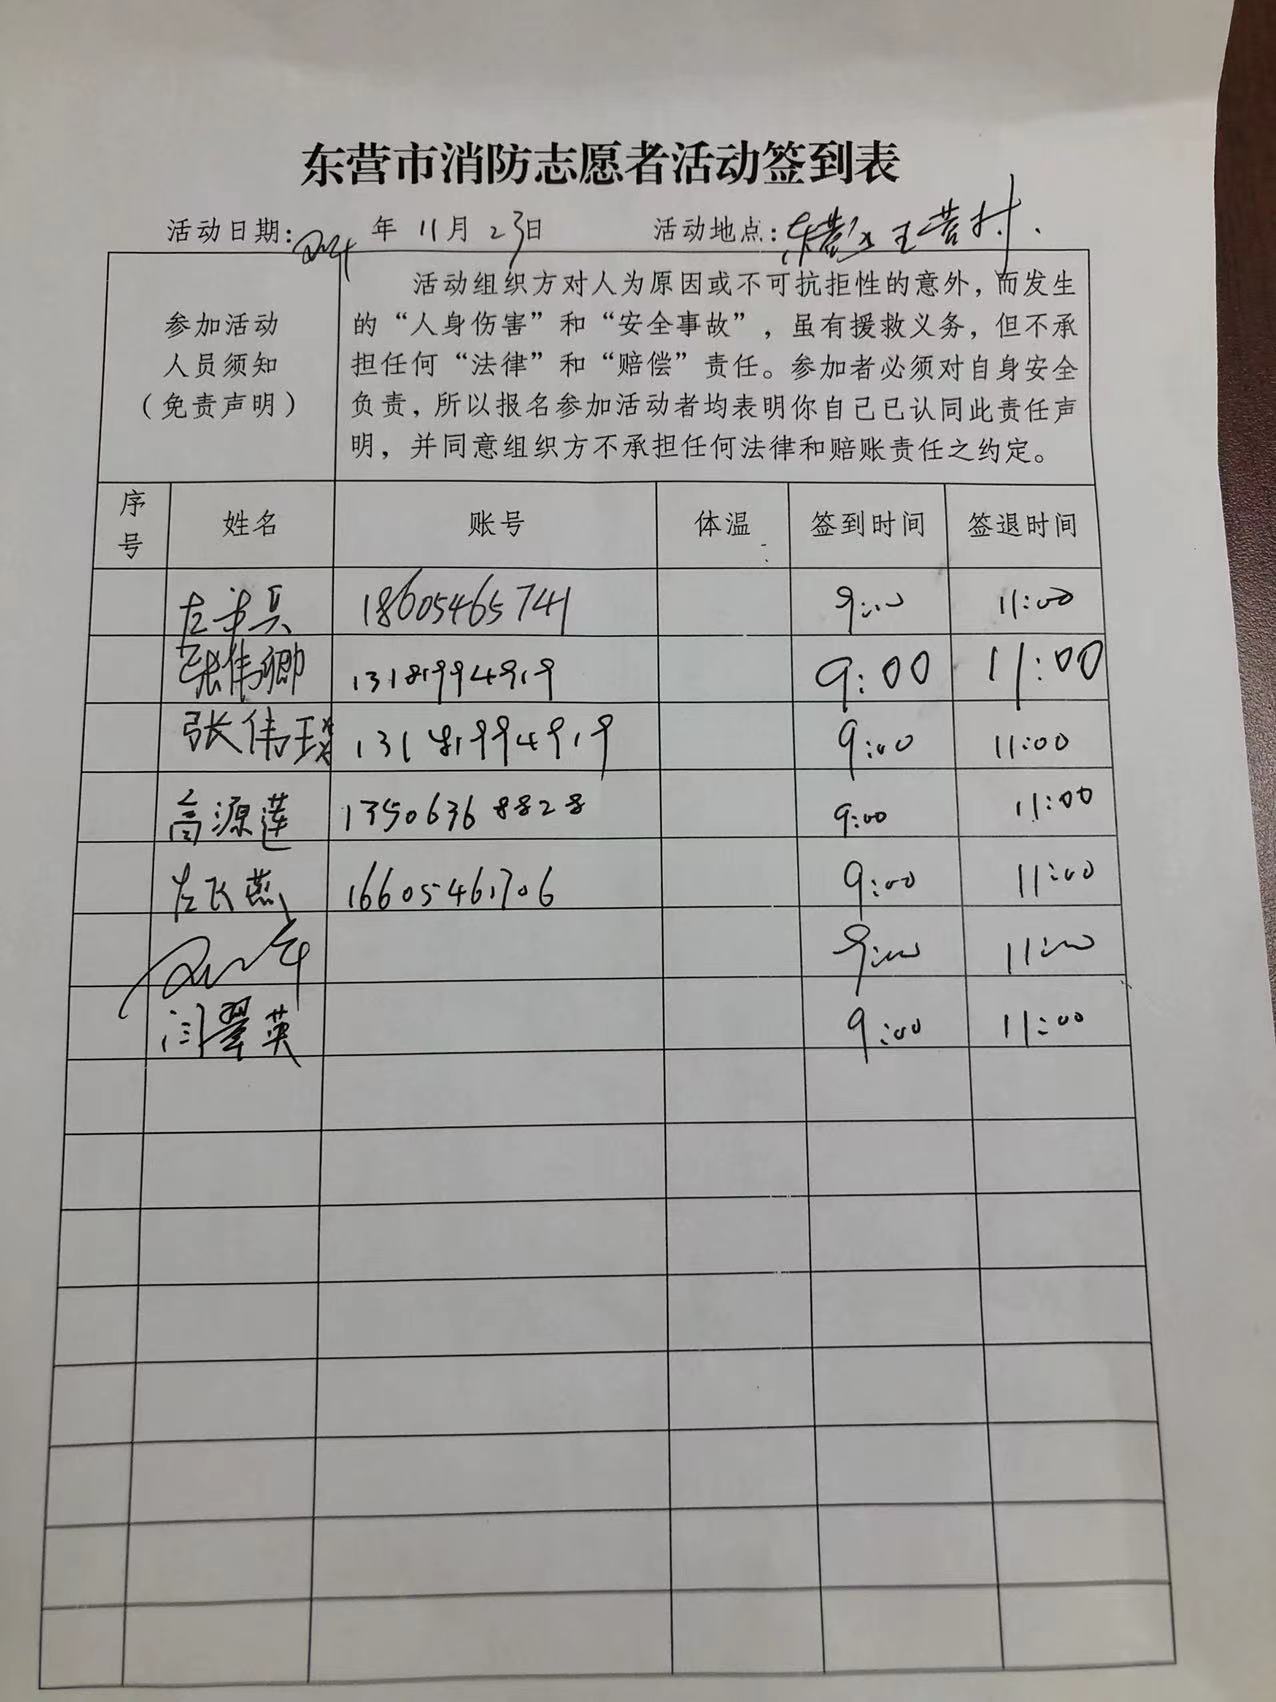 东营市消防志愿者活动签到表
活动日期: 年 11月 23日 活动地点: 王营村
参加活动人员须知（免责声明）
活动组织方对人为原因或不可抗拒性的意外，而发生
的“人身伤害”和“安全事故”，虽有援救义务，但不承
担任何“法律”和“赔偿”责任。参加者必须对自身安全
负责，所以报名参加活动者均表明你自己已认同此责任声
明，并同意组织方不承担任何法律和赔账责任之约定。
序号 姓名 账号 体温 签到时间 签退时间
左 兵 18605465741 9:00 11:00
张伟卿 13181994919 9:00 11:00
张伟瑛 13181994919 9:00 11:00
高源莲 13506368828 9:00 11:00
左飞燕 16605461706 9:00 11:00
9:00 11:00
闫翠英 9:00 11:00